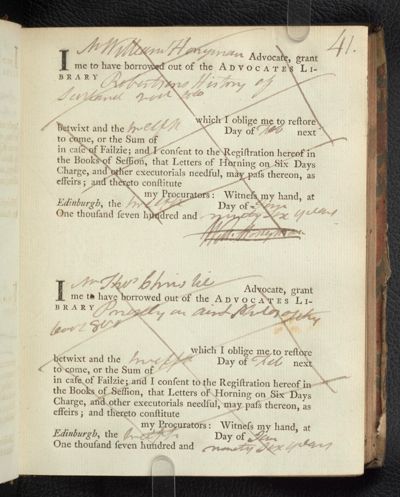 41.
I Mr William Honyman Advocate, grant
me to have borrowed out of the ADVOCATES LI-
BRARY Robertsons History of
Scotland 2 vol
which I oblige me to reſtore
betwixt and the twelfth Day of Feb next
to come, or the Sum of
in caſe of Failzie; and I conſent to the Regiſtration hereof in
the Books of Seſſion, that Letters of Horning on Six Days
Charge, and other executorials needful, may paſs thereon, as
effeirs; and thereto conſtitute
my Procurators: Witneſs my hand, at
Edinburgh, the twelfth Day of Jan
One thouſand ſeven hundred and ninety six years
Will. Honyman
I Mr Thos Christie Advocate, grant
me to have borrowed out of the ADVOCATES LI-
BRARY Priestly on
8vo
which I oblige me to reſtore
betwixt and the twelfth Day of Feb next
to come, or the Sum of
in caſe of Failzie; and I conſent to the Regiſtration hereof in
the Books of Seſſion, that Letters of Horning on Six Days
Charge, and other executorials needful, may paſs thereon, as
effeirs; and thereto conſtitute
my Procurators: Witneſs my hand, at
Edinburgh, the twelfth Day of Jan
One thouſand ſeven hundred and ninety six years